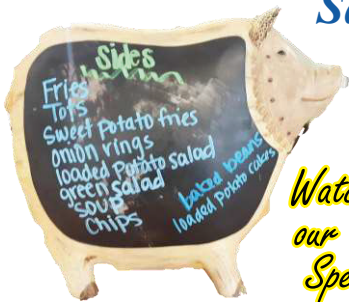 Sides
Fries
Tots
sweet potato fries
onion rings
loaded potato salad
green salad
soup
Chips
baked beans
loaded potato cakes
our